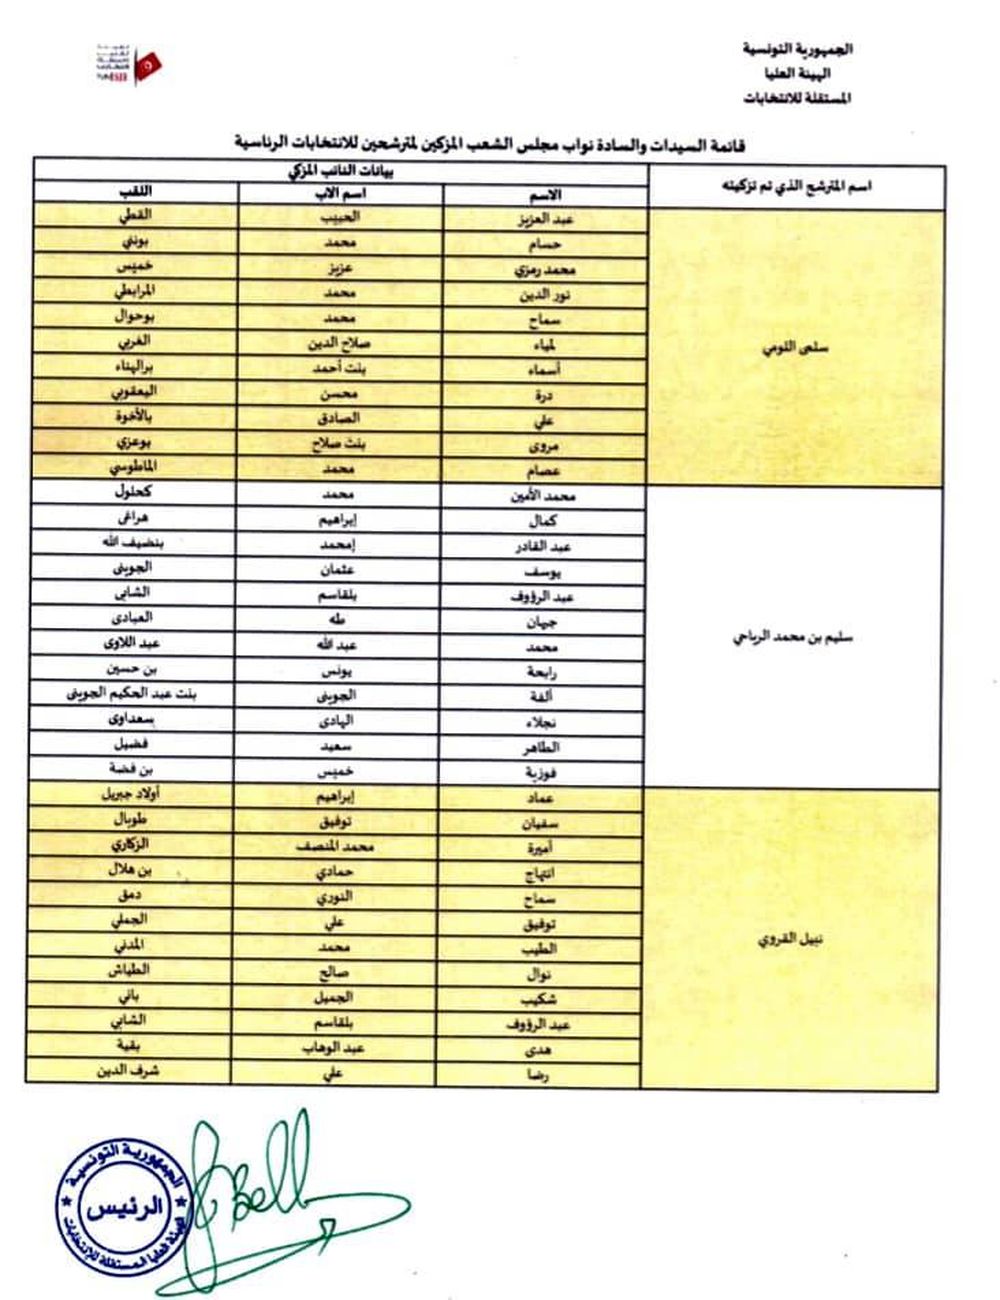 الجمهورية التونسية
الهيئة العليا
المستقلة للانتخابات
قائمة السيدات والسادة نواب مجلس الشعب المزكين لمترشحين للانتخابات الرئاسية
اسم المترشح الذي تم تزكيته
بيانات النائب المزكي
الاسم اسم الاب اللقب
سلمى اللومي
عبد العزيز الحبيب القطي
حسام محمد بونني
محمد رمزي عزيز خميس
نور الدين محمد المرابطي
سماح محمد بوحوال
لمياء صلاح الدين الغربي
أسماء بنت أحمد
درة محسن اليعقوبي
علي الصادق بالأخوة
مروى بنت صلاح بوعزي
عصام محمد الماطوسي
سليم بن محمد الرياحي
محمد الأمين محمد كحلول
كمال إبراهيم هراغى
عبد القادر إمحمد بنضيف الله
يوسف عثمان الجوينى
عبد الرؤوف بلقاسم الشابى
جيهان طه العبادى
محمد عبد الله عبد اللاوى
رابحة يونس بن حسين
ألفة الجوينى بنت عبد الحكيم الجوينى
نجلاء الهادى سعداوى
الطاهر سعيد فضيل
فوزية خميس بن فضة
نبيل القروي
عماد إبراهيم أولاد جبريل
سفيان توفيق طوبال
أميرة محمد المنصف الزكاري
ابتهاج حمادي بن هلال
سماح النوري دمق
توفيق علي الجملي
الطيب محمد المدني
نوال صالح الطياش
شكيب الجميل باني
عبد الرؤوف بلقاسم الشابي
هدى عبد الوهاب بقية
رضا علي شرف الدين
الجمهورية التونسية
الرئيس
الهيئة العليا المستقلة للإنتخابات